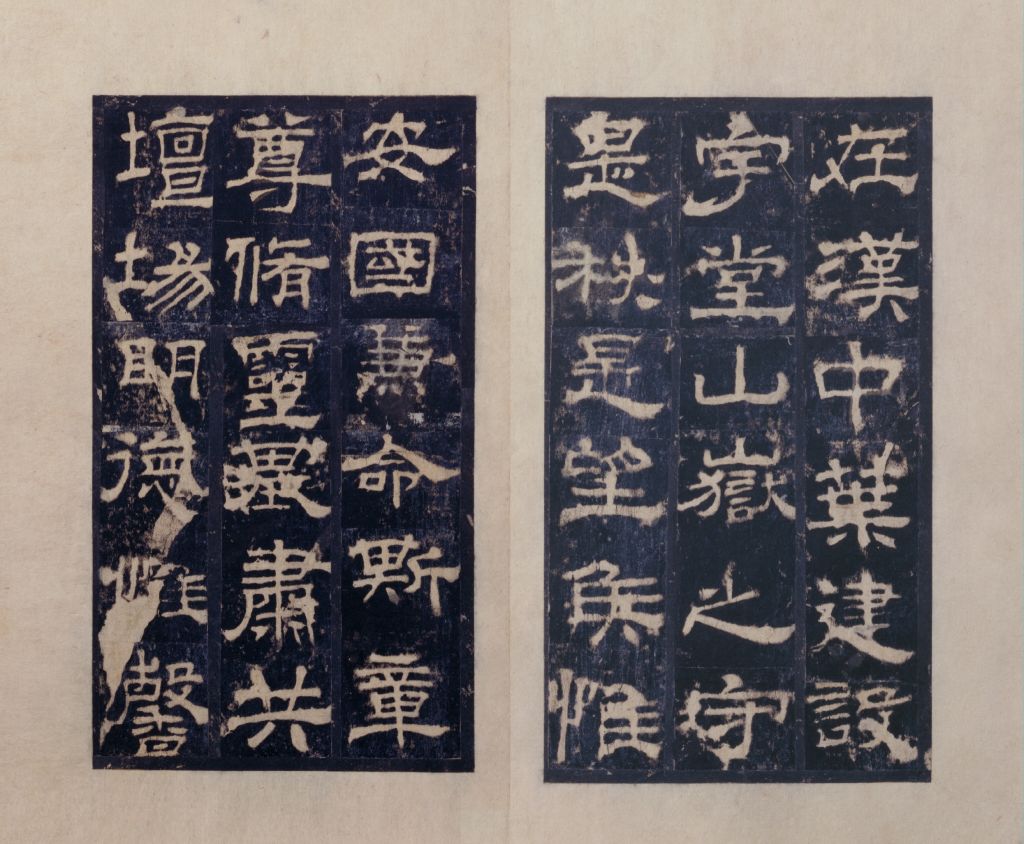 在漢中葉建設
宇堂山嶽之守
是秩是望侯惟
安國兼命斯章
尊脩靈基肅共
壇場明德惟馨